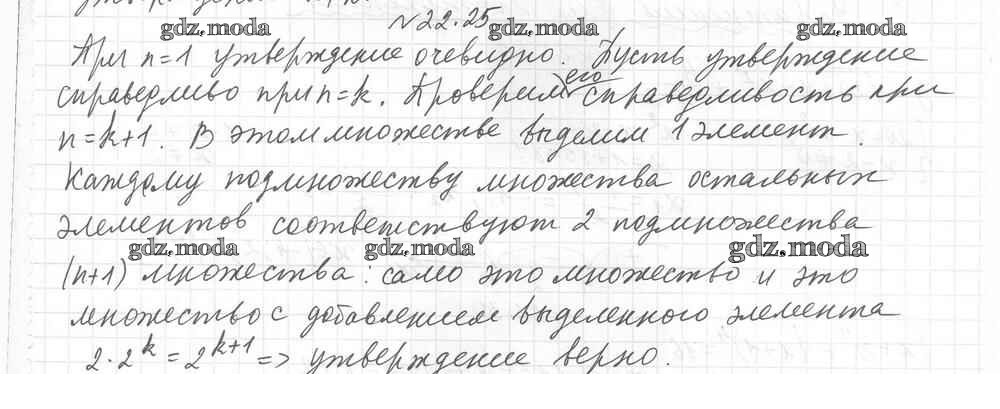 №22.25
gdz.moda gdz.moda gdz.moda
При n=1 утверждение очевидно. Пусть утверждение
его
справедливо при n=k. Проверим справедливость при
n=k+1. В этом множестве выделим 1 элемент.
Каждому подмножеству множества остальных
элементов соответствуют 2 подмножества
gdz.moda gdz.moda gdz.moda
(n+1) множества: само это множество и это
множество с добавлением выделенного элемента
2·2^k = 2^k+1 => утверждение верно.